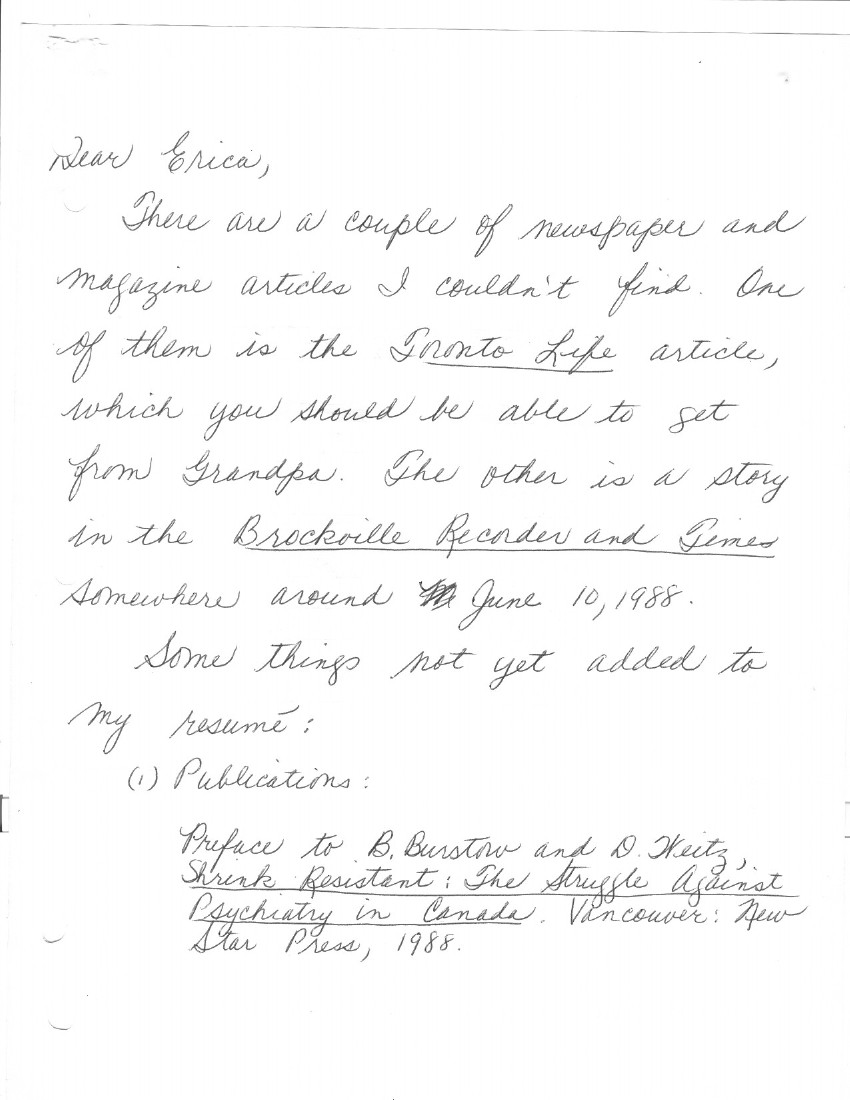 Dear Erica,
There are a couple of newspaper and
magazine articles I couldn't find. One
of them is the Toronto Life article,
which you should be able to get
from Grandpa. The other is a story
in the Brockville Recorder and Times
somewhere around June 10, 1988.
Some things not yet added to
my resumé:
(1) Publications:
Preface to B. Burstow and D. Weitz,
Shrink Resistant: The Struggle Against
Psychiatry in Canada. Vancouver: New
Star Press, 1988.